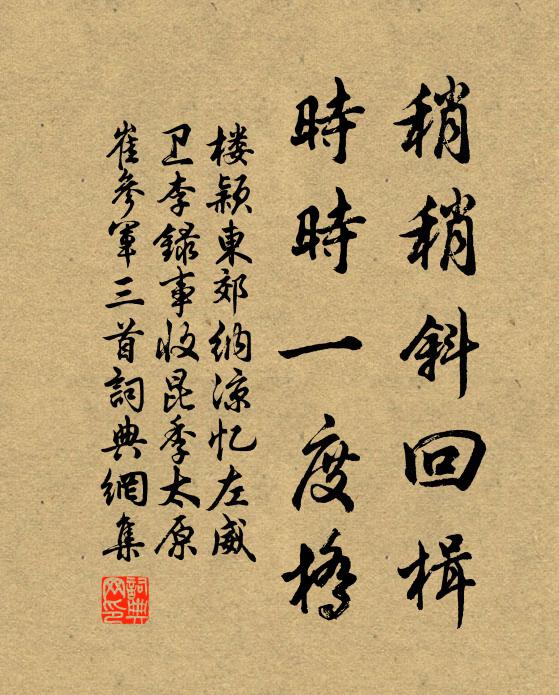 稍稍斜回楫
時時一度橋
楼颖東郊纳涼忆左威
卫李録事收昆季太原
崔参軍三首詞典網集
詞典網印